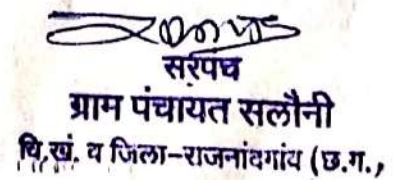 सरपंच
ग्राम पंचायत सलौनी
वि.खं. व जिला-राजनांदगांव (छ.ग.,